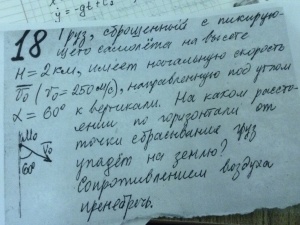 y = -gt + C₂
18 Груз, сброшенный с пикирую-
щего самолёта на высоте
H = 2 км, имеет начальную скорость
v̅₀ (v₀ = 250 м/с), направленную под углом
α = 60° к вертикали. На каком рассто-
янии по горизонтали от
точки сбрасывания груз
упадёт на землю?
Сопротивлением воздуха
пренебречь.
M₀
v̅₀
60°